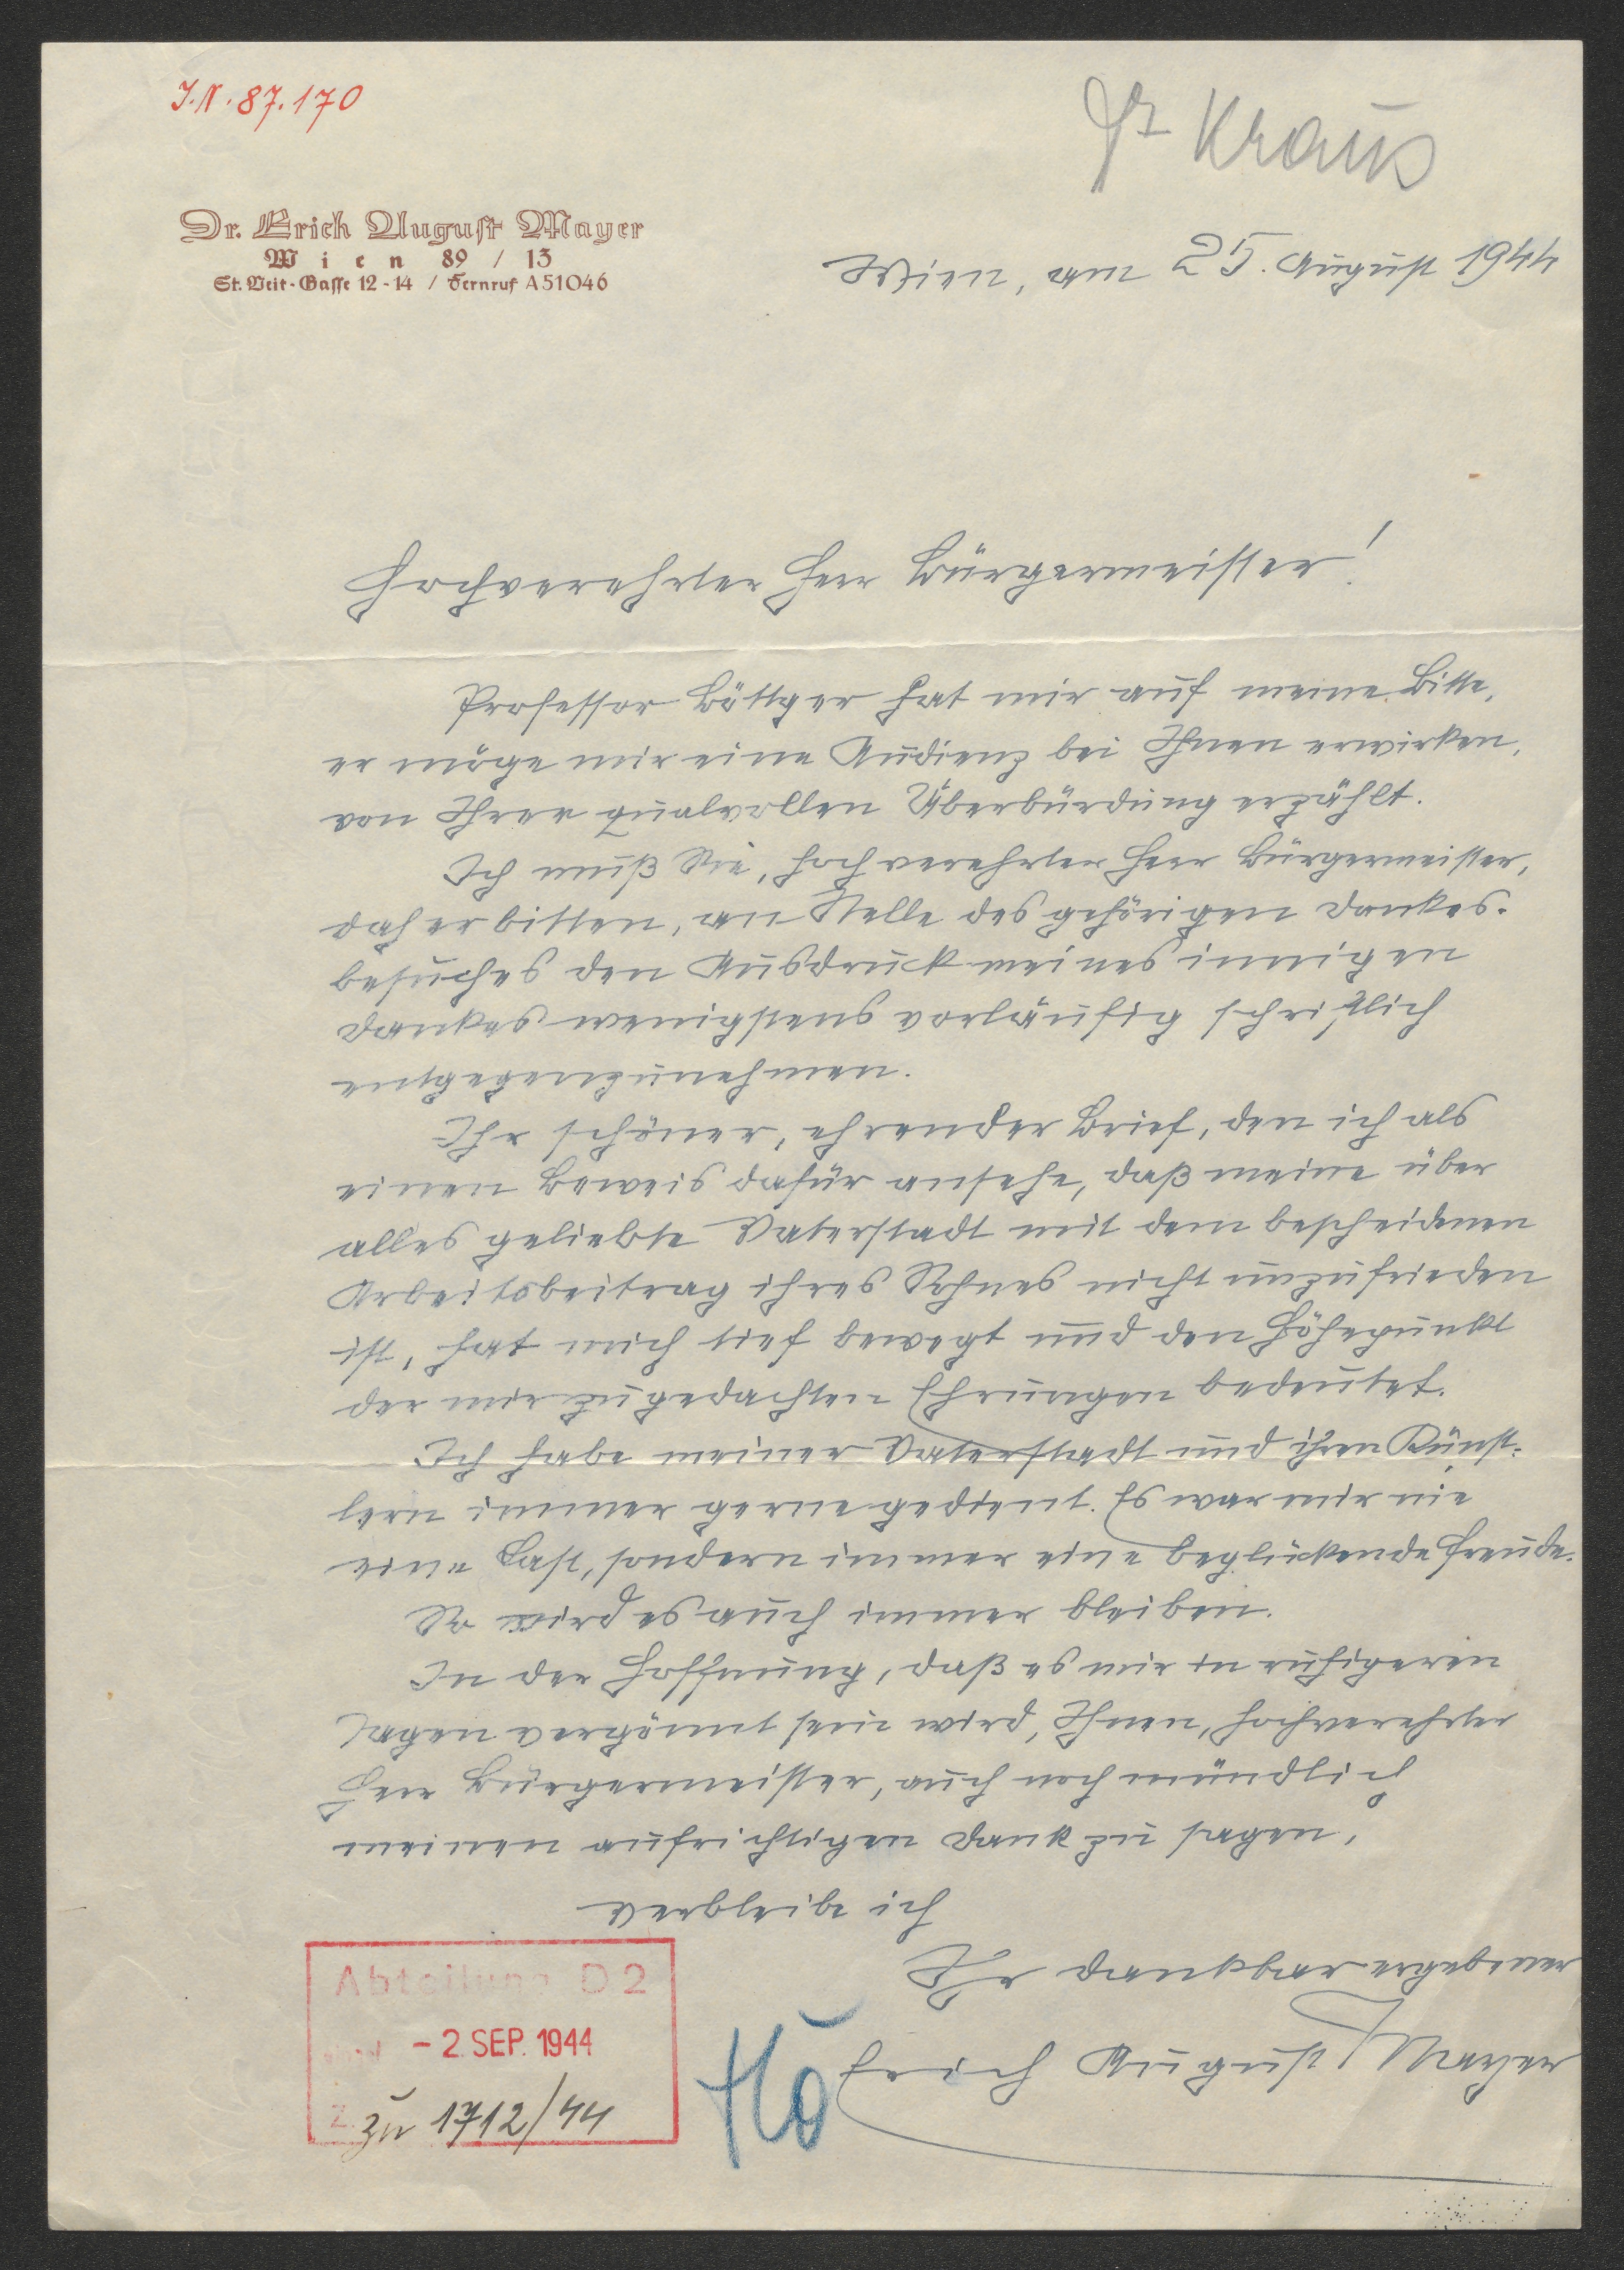 J.N. 87.170
Dr Kraus
Dr. Erich August Mayer
Wien 89 / 13
St. Veit-Gasse 12-14 / Fernruf A 51046
Wien, am 25. August 1944
Hochverehrter Herr Bürgermeister!
Professor Böttger hat mir auf meine Bitte,
er möge mir eine Audienz bei Ihnen erwirken,
von Ihrer qualvollen Überbürdung erzählt.
Ich muß Sie, hochverehrter Herr Bürgermeister,
daher bitten, an Stelle des gehörigen Dankes-
besuches den Ausdruck meines innigen
Dankes wenigstens vorläufig schriftlich
entgegenzunehmen.
Ihr schöner, ehrender Brief, den ich als
einen Beweis dafür ansehe, daß meine über
alles geliebte Vaterstadt mit dem bescheidenen
Arbeitsbeitrag ihres Sohnes nicht unzufrieden
ist, hat mich tief bewegt und den Höhepunkt
der mir zugedachten Ehrungen bedeutet.
Ich habe meiner Vaterstadt und ihren Künst-
lern immer gerne gedient. Es war mir nie
eine Last, sondern immer eine beglückende Freude.
So wird es auch immer bleiben.
In der Hoffnung, daß es mir in ruhigeren
Tagen vergönnt sein wird, Ihnen, hochverehrter
Herr Bürgermeister, auch noch mündlich
meinen aufrichtigen Dank zu sagen,
verbleibe ich
Ihr dankbar ergebener
Erich August Mayer
Abteilung D 2
- 2. SEP. 1944
Z. zu 1712/44